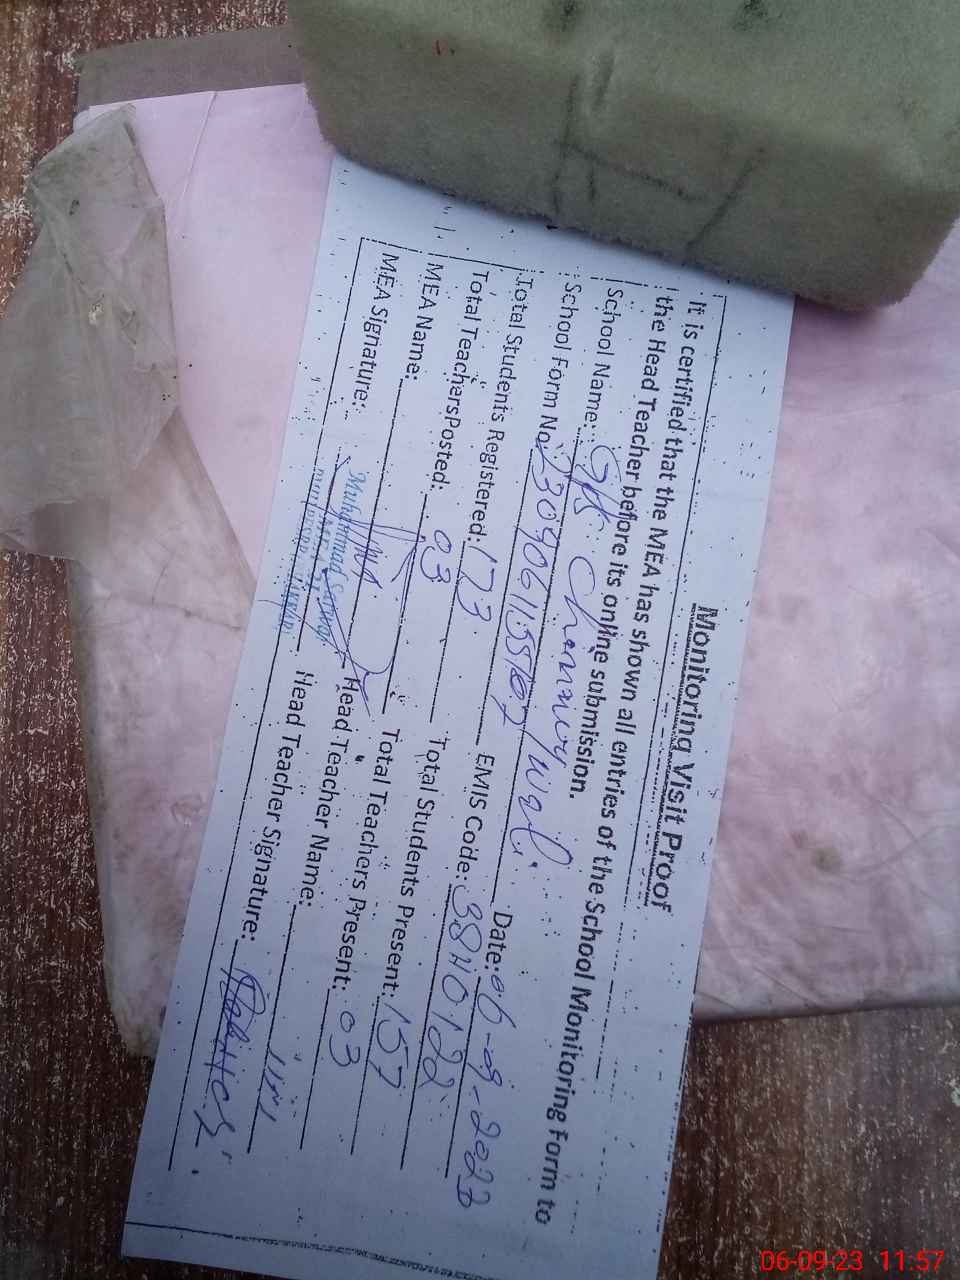 Monitoring Visit Proof
It is certified that the MEA has shown all entries of the School Monitoring Form to
the Head Teacher before its online submission.
School Name: GPS Chimney Wali
School Form No: Date: 06-09-2023
Total Students Registered: 173 EMIS Code: 3840122
Total TeachersPosted: 03 Total Students Present: 157
MEA Name: Total Teachers Present: 03
MEA Signature: Head Teacher Name:
Muhammad
Head Teacher Signature:
06-09-23 11:57